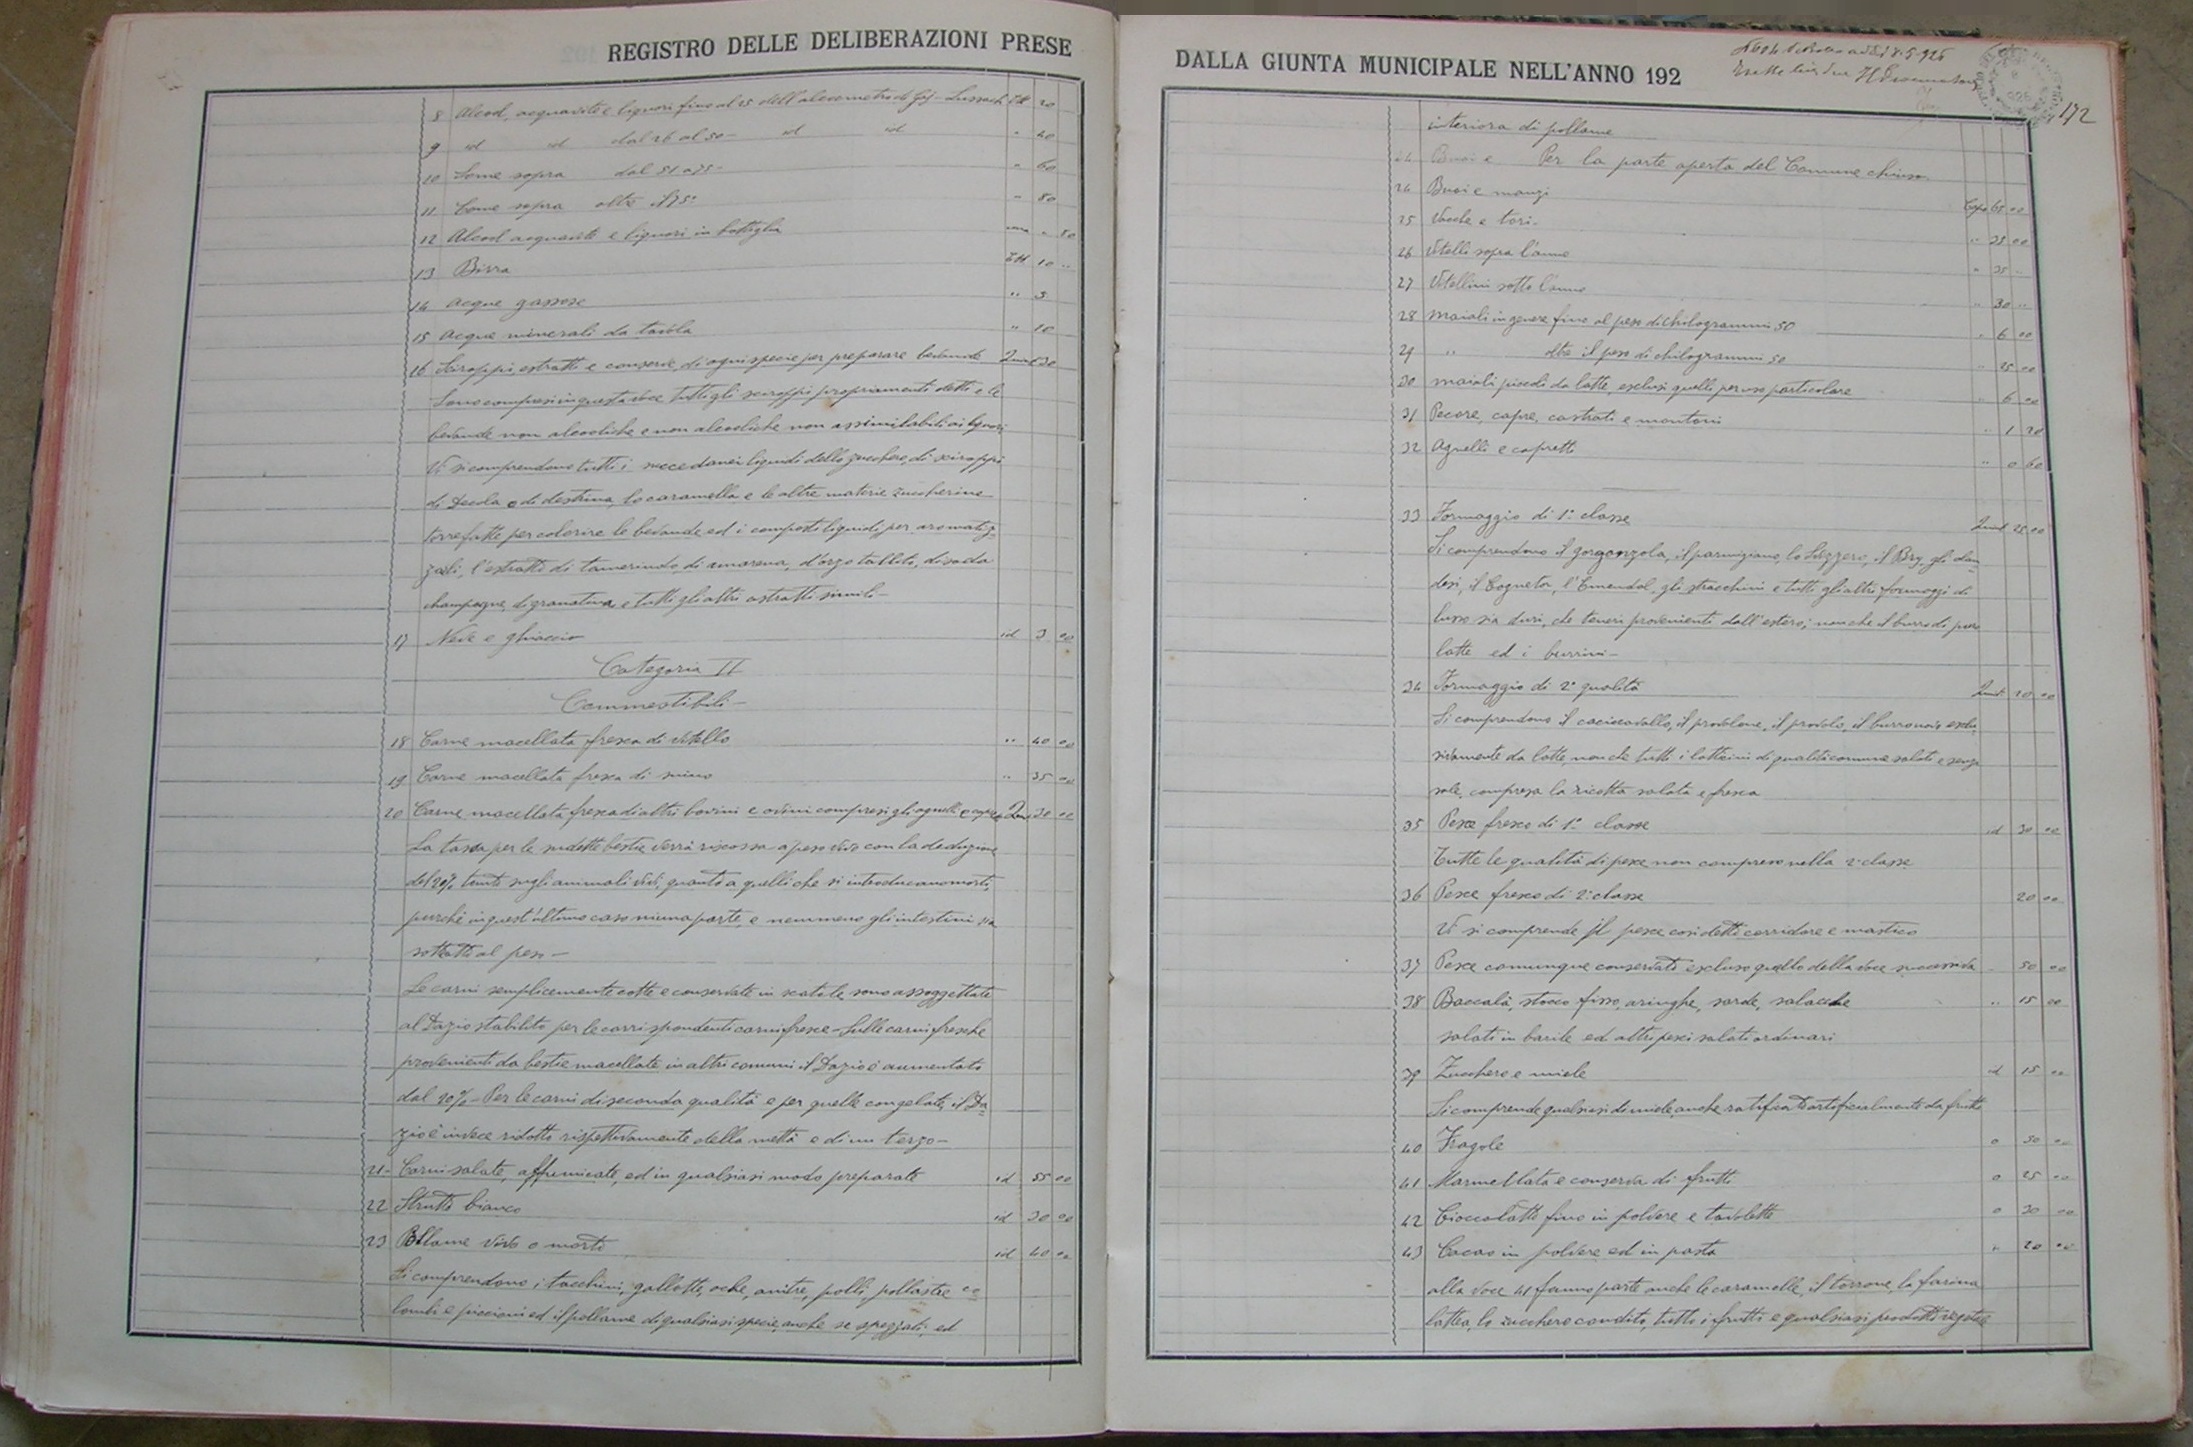 REGISTRO DELLE DELIBERAZIONI PRESE
8 Alcool, acquavite e liquori fino al 25 dell'alcoometro di Gay-Lussach Ett 20
9 id id dal 26 al 50 - id id " 40
10 Come sopra dal 51 a 75 - " 60
11 Come sopra oltre il 75° " 80
12 Alcool acquavite e liquori in bottiglia una " 80
13 Birra Ett 10 "
14 Acque gassose " 5
15 Acque minerali da tavola " 10
16 Sciroppi, estratti e conserve di ogni specie per preparare bevande Quint 30
Sono compresi in questa voce tutti gli sciroppi propriamenti detti e le
bevande non alcooliche e non alcooliche non assimilabili ai liquori
Vi si comprendono tutti i succedanei liquidi dello zucchero, di sciroppi
di Decola e di destrina, lo caramella e le altre materie zuccherine
torrefatte per colorire le bevande ed i composti liquidi per aromatiz-
zarli, l'estratti di tamerindo, di amarena, d'orzo tallito, di soda
champagne, di granatina e tutti gli altri astratti simili -
17 Neve e ghiaccio id 3 00
Categoria II
Commestibili -
18 Carne macellata fresca di vitello " 40 00
19 Carne macellata fresca di suino " 35 00
20 Carne macellata fresca di altri bovini e ovini compresi gli agnelli e capre Quint 30 00
La tassa per le sudette bestie verrà riscossa a peso vivo con la deduzione
del 20% tanto sugli animali vivi, quanto a quelli che si introducano morti,
purchè in quest'ultimo caso niuna parte, e nemmeno gli intestini sia
sottratti al peso -
Le carni semplicemente cotte e conservate in scatole sono assoggettate
al Dazio stabilito per le corrispondenti carni fresce - Sulle carni fresche
provenienti da bestie macellate in altri comuni il Dazio è aumentato
dal 20% - Per le carni di seconda qualità e per quelle congelate, il Da-
zio è invece ridotto rispettivamente della mettà e di un terzo -
21 - Carni salate, affumicate, ed in qualsiasi modo preparate id 55 00
22 Strutto bianco id 30 00
23 Pollame vivo o morto id 40 00
Si comprendono i tacchini, gallotte, oche, anitre, polli, pollastre co
lombi e piccioni ed il pollame di qualsiasi specie, anche se spezzati, ed
DALLA GIUNTA MUNICIPALE NELL'ANNO 192
172
interiora di pollame
24 Buoi e Per la parte aperta del Comune chiuso.
24 Buoi e manzi Capo 65 00
25 Vacche e tori - " 35 00
26 Vitelli sopra l'anno " 35 "
27 Vitellini sotto l'anno " 30 "
28 Maiali in genere fino al peso di chilogrammi 50 " 6 00
29 " oltre il peso di chilogrammi 50 " 25 00
30 Maiali piccoli da latte, esclusi quelli per uso particolare " 6 00
31 Pecore, capre, castrati e montoni " 1 20
32 Agnelli e capretti " 0 60
33 Formaggio di 1ª classe Quint 25 00
Si comprendono il gorgonzola, il parmigiano, lo svizzero, il Bry, gli olan-
desi, il , l'Emendal, gli stracchini e tutti gli altri formaggi di
lusso sia duri, che teneri provenienti dall'estero; nonchè il burro di puro
latte ed i burrini -
34 Formaggio di 2ª qualità Quint 20 00
Si comprendono il caciocavallo, il provolone, il provolo, il burro esclu-
sivamente da latte, nonchè tutti i latticini di qualità comune salati e senza
sale, compresa la ricotta salata e fresca
35 Pesce fresco di 1ª classe id 30 00
Tutte le qualità di pesce non compreso nella 2ª classe
36 Pesce fresco di 2ª classe 20 00
Vi si comprende il pesce così detto corridore e mastico
37 Pesce comunque conservato escluso quello della voce successiva 50 00
38 Baccalà, stocco fisso, aringhe, sarde, salacche " 15 00
salati in barile ed altri pesci salati ordinari
39 Zucchero e miele id 15 00
Si comprende qualsiasi di miele, anche artificialmente da frutti
40 Fragole " 50 00
41 Marmellata e conserva di frutti " 25 00
42 Cioccolatto fino in polvere e tavolette " 30 00
43 Cacao in polvere ed in pasta " 20 00
alla voce 41 fanno parte anche le caramelle, il torrone, la farina
lattea, lo zucchero candito, tutti i frutti e qualsiasi prodotti